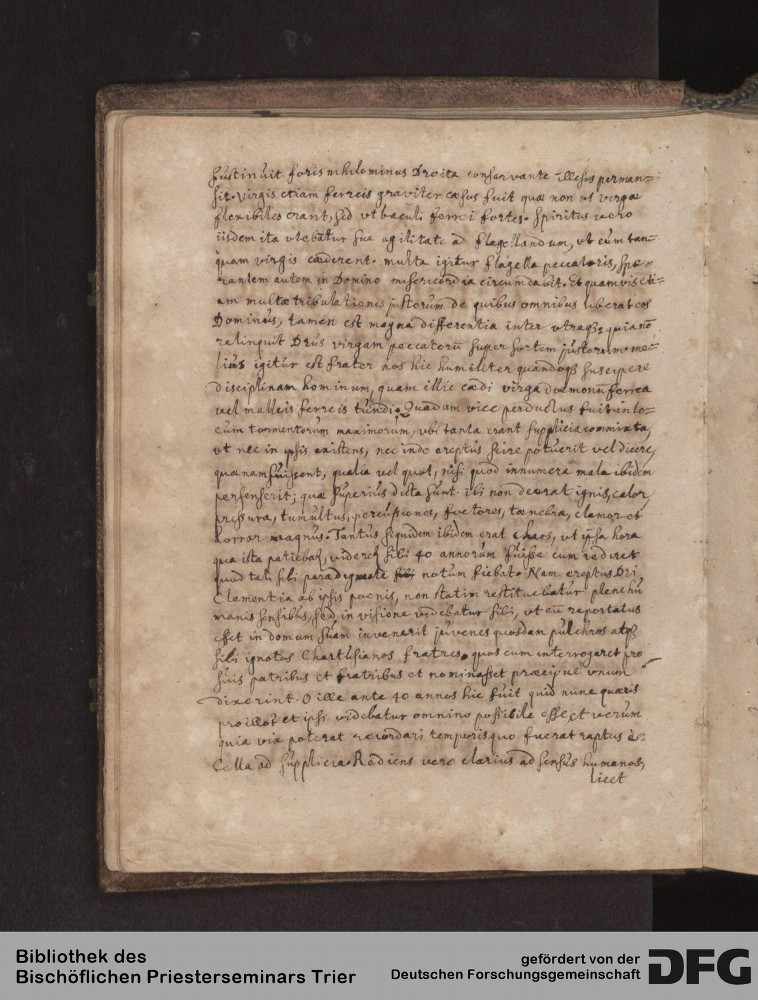 sustinuit foris nihilominus Droita conservante illesus perman=
sit. Virgis etiam ferreis graviter cæsus fuit quæ non ut virgæ
flexibiles erant, sed ut baculi ferrei fortes. Spiritus vero
iisdem ita utebatur suæ agilitate ad flagellandum, ut cum tan=
quam virgis cæderent. multa igitur flagella peccatoris, spe=
rantem autem in Domino misericordia circumdabit. Et quamvis eti=
am multæ tribulationes justorum de quibus omnibus liberat eos
Dominus, tamen est magna differentia inter utrasq; quia nō
relinquit Deus virgam peccatorū super sortem justorum me=
lius igitur est frater nos hic humiliter quandoq; suscipere
disciplinam hominum, quam illic cædi virga dæmonū ferrea
vel malleis ferreis tundi. Quadam vice perductus fuit in lo=
cum tormentorum maximorum, ubi tanta erant supplicia commixta,
ut nec in ipsis existens, nec inde ereptus scire potuerit vel dicere,
quænam fuissent, qualia vel quot, nisi quod innumera mala ibidem
persenserit; quæ superius dicta sunt. ibi non deerat ignis, calor,
pressura, tumultus, percussiones, fœtores, tænebra, clamor et
horror magnus. Tantus siquidem ibidem erat chaos, ut ipsa hora
qua ista patiebat, videret sibi 40 annorum fuisse cum rediret
quod tali sibi paradigmate notum fiebat. Nam ereptus Dei
Clementia ab ipsis poenis, non statim restituebatur plene hu
manis sensibus, sed in visione videbatur sibi, ut cū reportatus
esset in domum suam invenerit juvenes quosdam pulchros atq;
sibi ignotos Chartusianos fratres. quos cum interrogaret pro
suis patribus et fratribus et nominasset præcipue unum
dixerint. O ille ante 40 annos hic fuit quid nunc quæris
pro illo? et ipsi videbatur omnino possibile esse et verum
quia vix poterat recordari temporis quo fuerat raptus è
Cella ad supplicia. Rediens vero clarius ad sensus humanos,
licet
Bibliothek des
Bischöflichen Priesterseminars Trier
gefördert von der
Deutschen Forschungsgemeinschaft
DFG